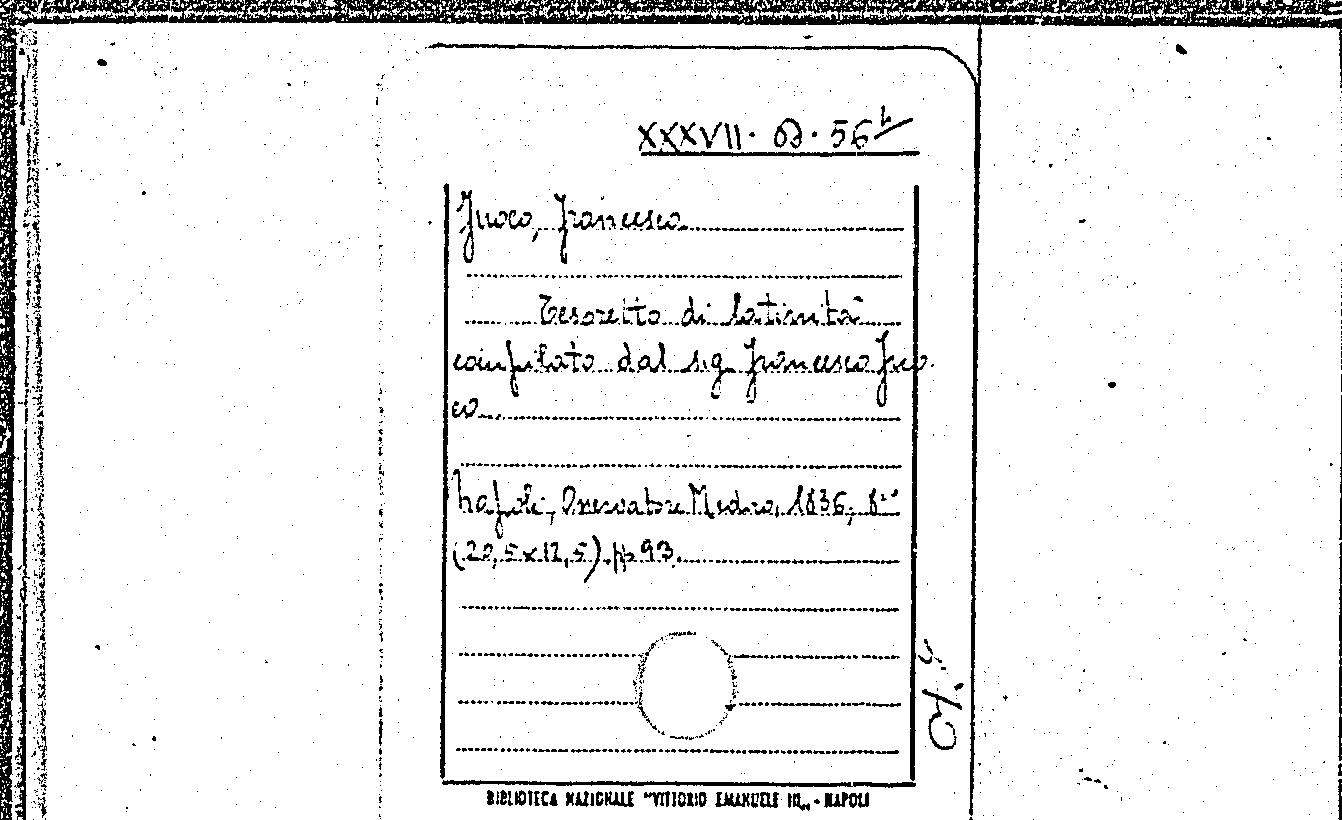 XXXVII. D. 56
Fuoco, Francesco
Tesoretto di latinità
compilato dal sig. Francesco Fuo-
co.
Napoli, Osservatore Medico, 1836, 8°
(20,5x12,5). pp. 93.
BIBLIOTECA NAZIONALE "VITTORIO EMANUELE III„ - NAPOLI